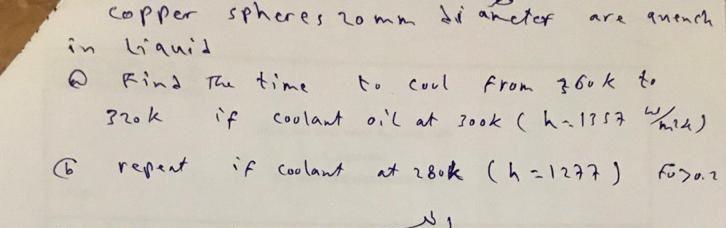 copper spheres 20 mm diameter are quench
in liquid
(a) Find The time to cool from 360k to
320k if coolant oil at 300k (h=1357 w/m²k)
(b repeat if coolant at 280k (h=1277) Fo>0.2